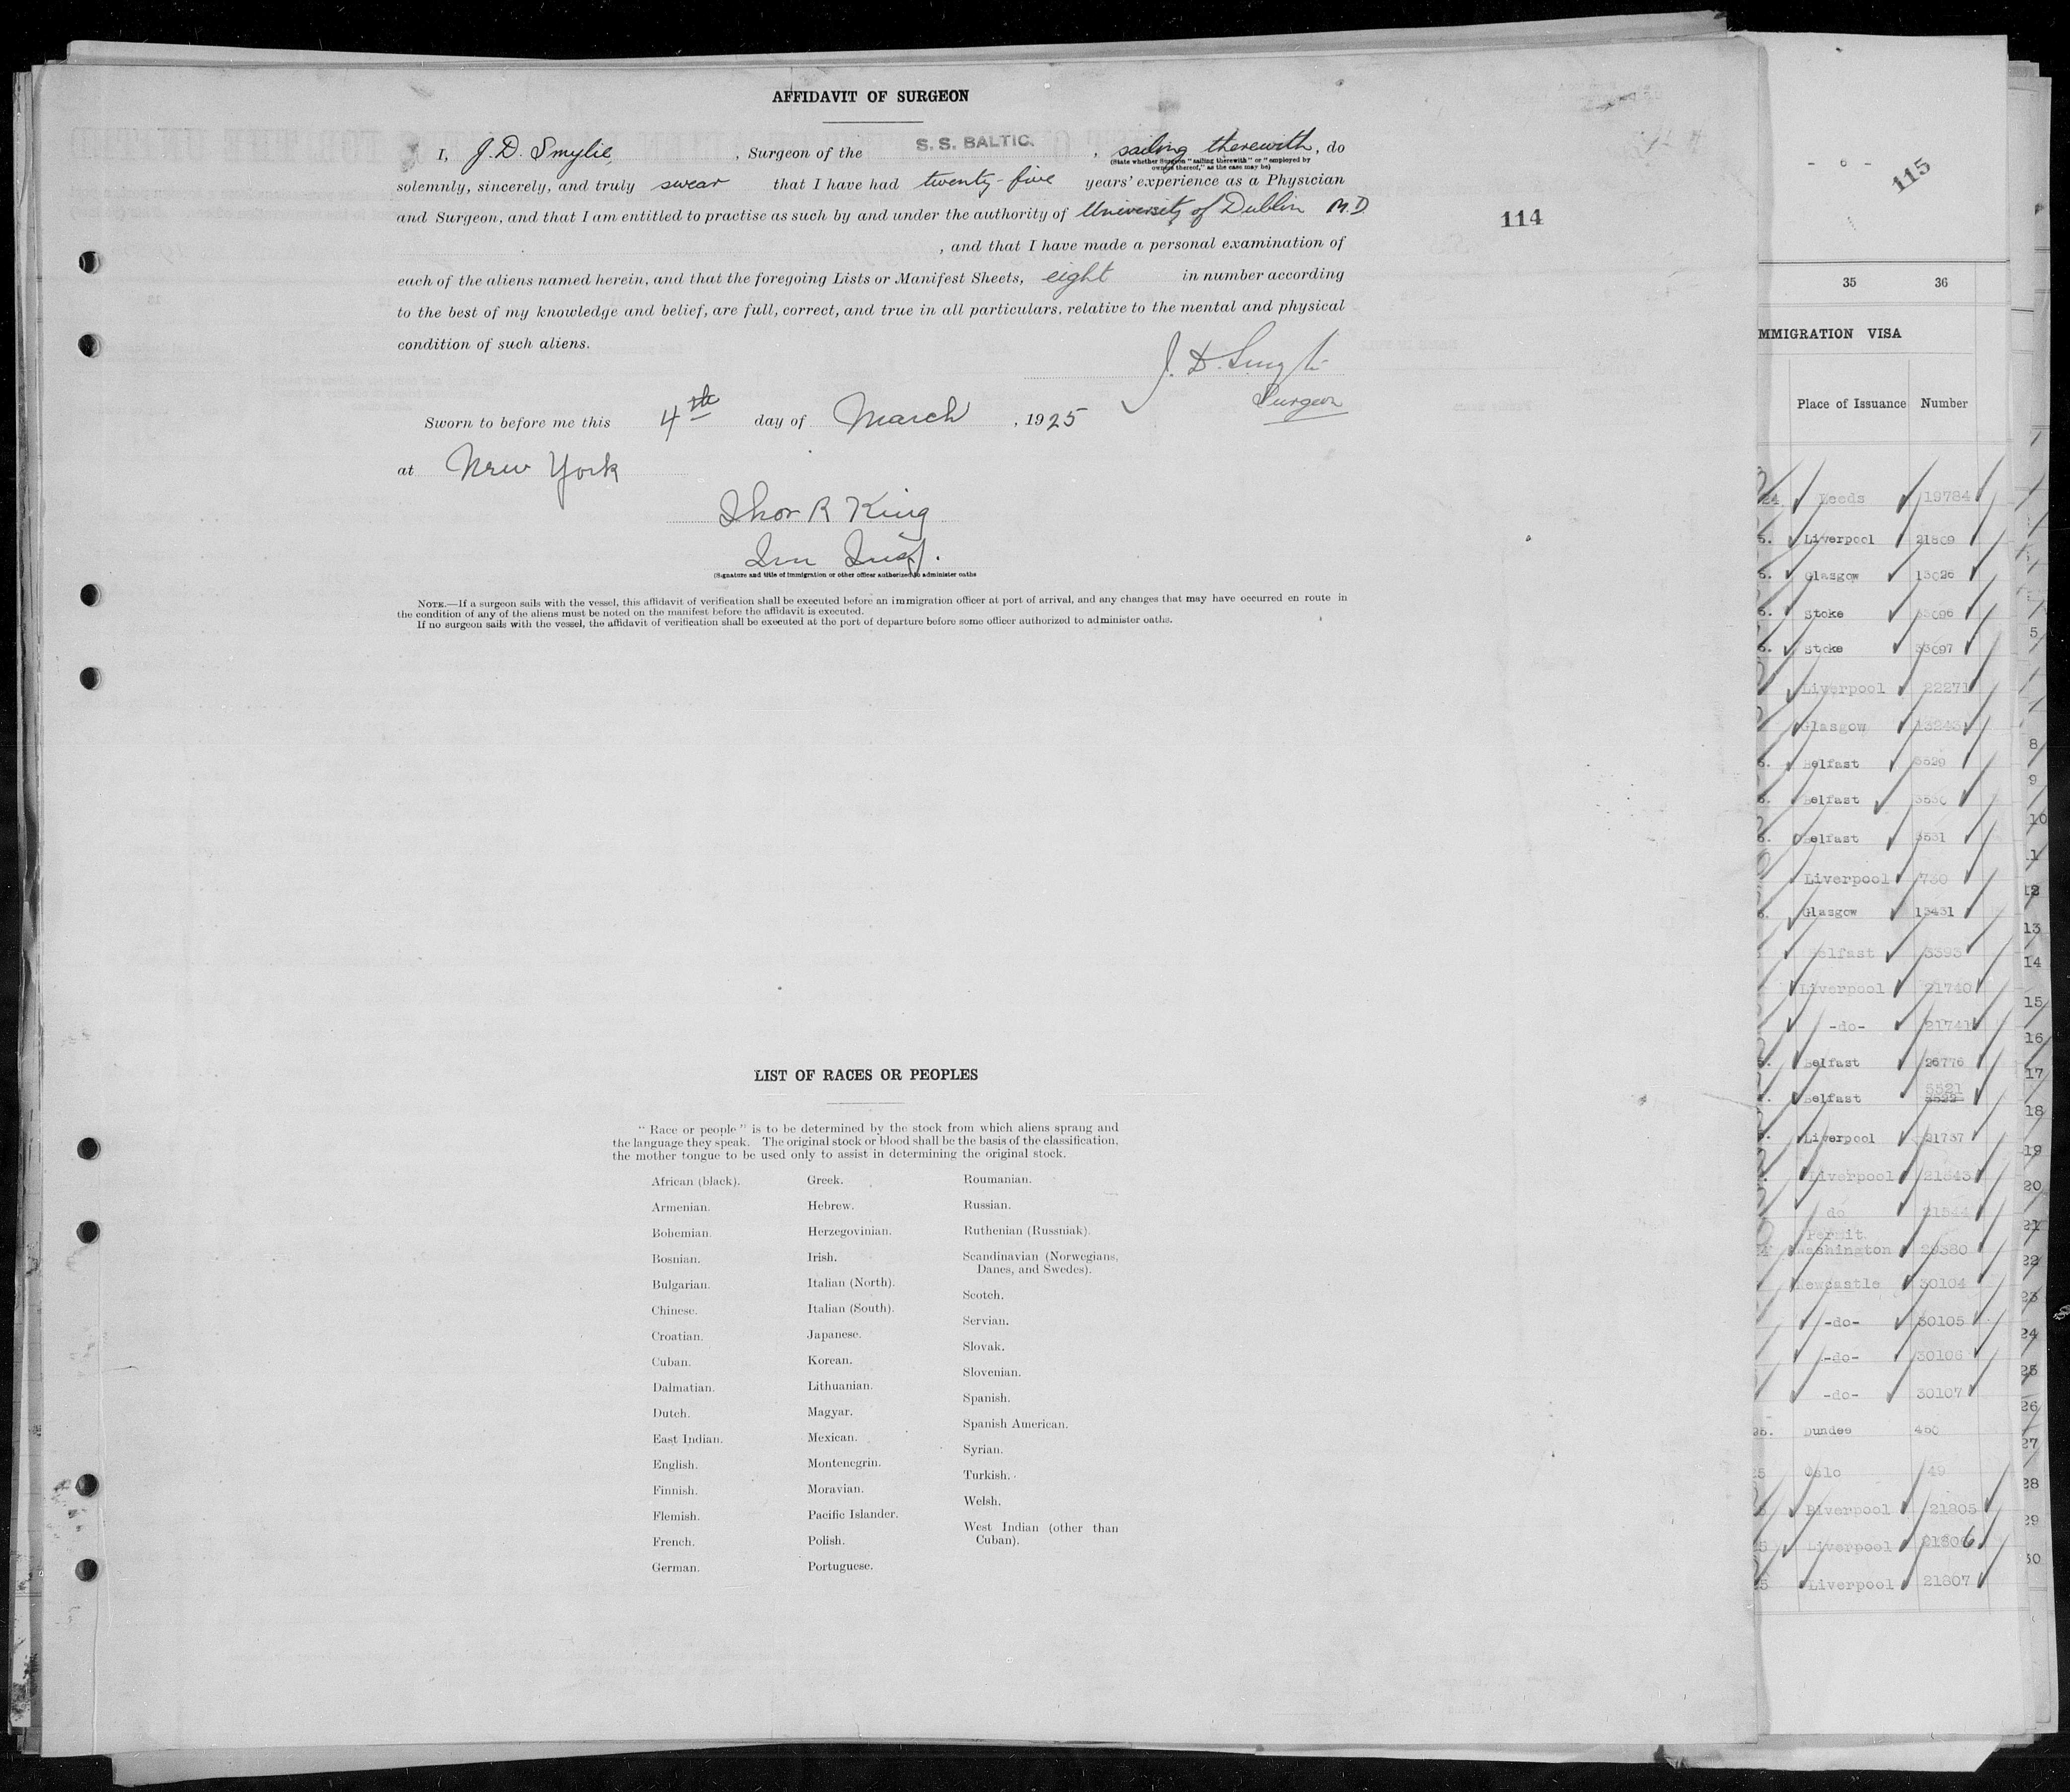 AFFIDAVIT OF SURGEON
I, J. D. Smylie, , Surgeon of the S. S. BALTIC. , sailing therewith, do
(State whether Surgeon "sailing therewith" or "employed by
owners thereof," as the case may be)
solemnly, sincerely, and truly swear that I have had twenty-five years' experience as a Physician
and Surgeon, and that I am entitled to practise as such by and under the authority of University of Dublin M.D.
, and that I have made a personal examination of
each of the aliens named herein, and that the foregoing Lists or Manifest Sheets, eight in number according
to the best of my knowledge and belief, are full, correct, and true in all particulars, relative to the mental and physical
condition of such aliens.
J. D. Smylie
Surgeon
Sworn to before me this 4th day of March , 1925
at New York
Thor R King
Imm Insp.
(Signature and title of immigration or other officer authorized to administer oaths
NOTE.—If a surgeon sails with the vessel, this affidavit of verification shall be executed before an immigration officer at port of arrival, and any changes that may have occurred en route in
the condition of any of the aliens must be noted on the manifest before the affidavit is executed.
If no surgeon sails with the vessel, the affidavit of verification shall be executed at the port of departure before some officer authorized to administer oaths.
114
LIST OF RACES OR PEOPLES
"Race or people" is to be determined by the stock from which aliens sprang and
the language they speak. The original stock or blood shall be the basis of the classification,
the mother tongue to be used only to assist in determining the original stock.
African (black).
Armenian.
Bohemian.
Bosnian.
Bulgarian.
Chinese.
Croatian.
Cuban.
Dalmatian.
Dutch.
East Indian.
English.
Finnish.
Flemish.
French.
German.
Greek.
Hebrew.
Herzegovinian.
Irish.
Italian (North).
Italian (South).
Japanese.
Korean.
Lithuanian.
Magyar.
Mexican.
Montenegrin.
Moravian.
Pacific Islander.
Polish.
Portuguese.
Roumanian.
Russian.
Ruthenian (Russniak).
Scandinavian (Norwegians,
Danes, and Swedes).
Scotch.
Servian.
Slovak.
Slovenian.
Spanish.
Spanish American.
Syrian.
Turkish.
Welsh.
West Indian (other than
Cuban).
- o -
115
35 36
MMIGRATION VISA
Place of Issuance Number
Leeds 19784
Liverpool 21809
Glasgow 13026
Stoke 33096
Stoke 33097
Liverpool 22271
Glasgow 13243
Belfast 3529
Belfast 3530
Belfast 3531
Liverpool 730
Glasgow 13431
Belfast 3393
Liverpool 21740
-do- 21741
Belfast 26776
Belfast 5521
Liverpool 21737
Liverpool 21543
do 21544
Permit
Washington 29380
Newcastle 30104
-do- 30105
-do- 30106
-do- 30107
Dundee 450
Oslo 49
Liverpool 21805
Liverpool 21806
Liverpool 21807
5
8
9
10
11
12
13
14
15
16
17
18
19
20
21
22
23
24
25
26
27
28
29
30